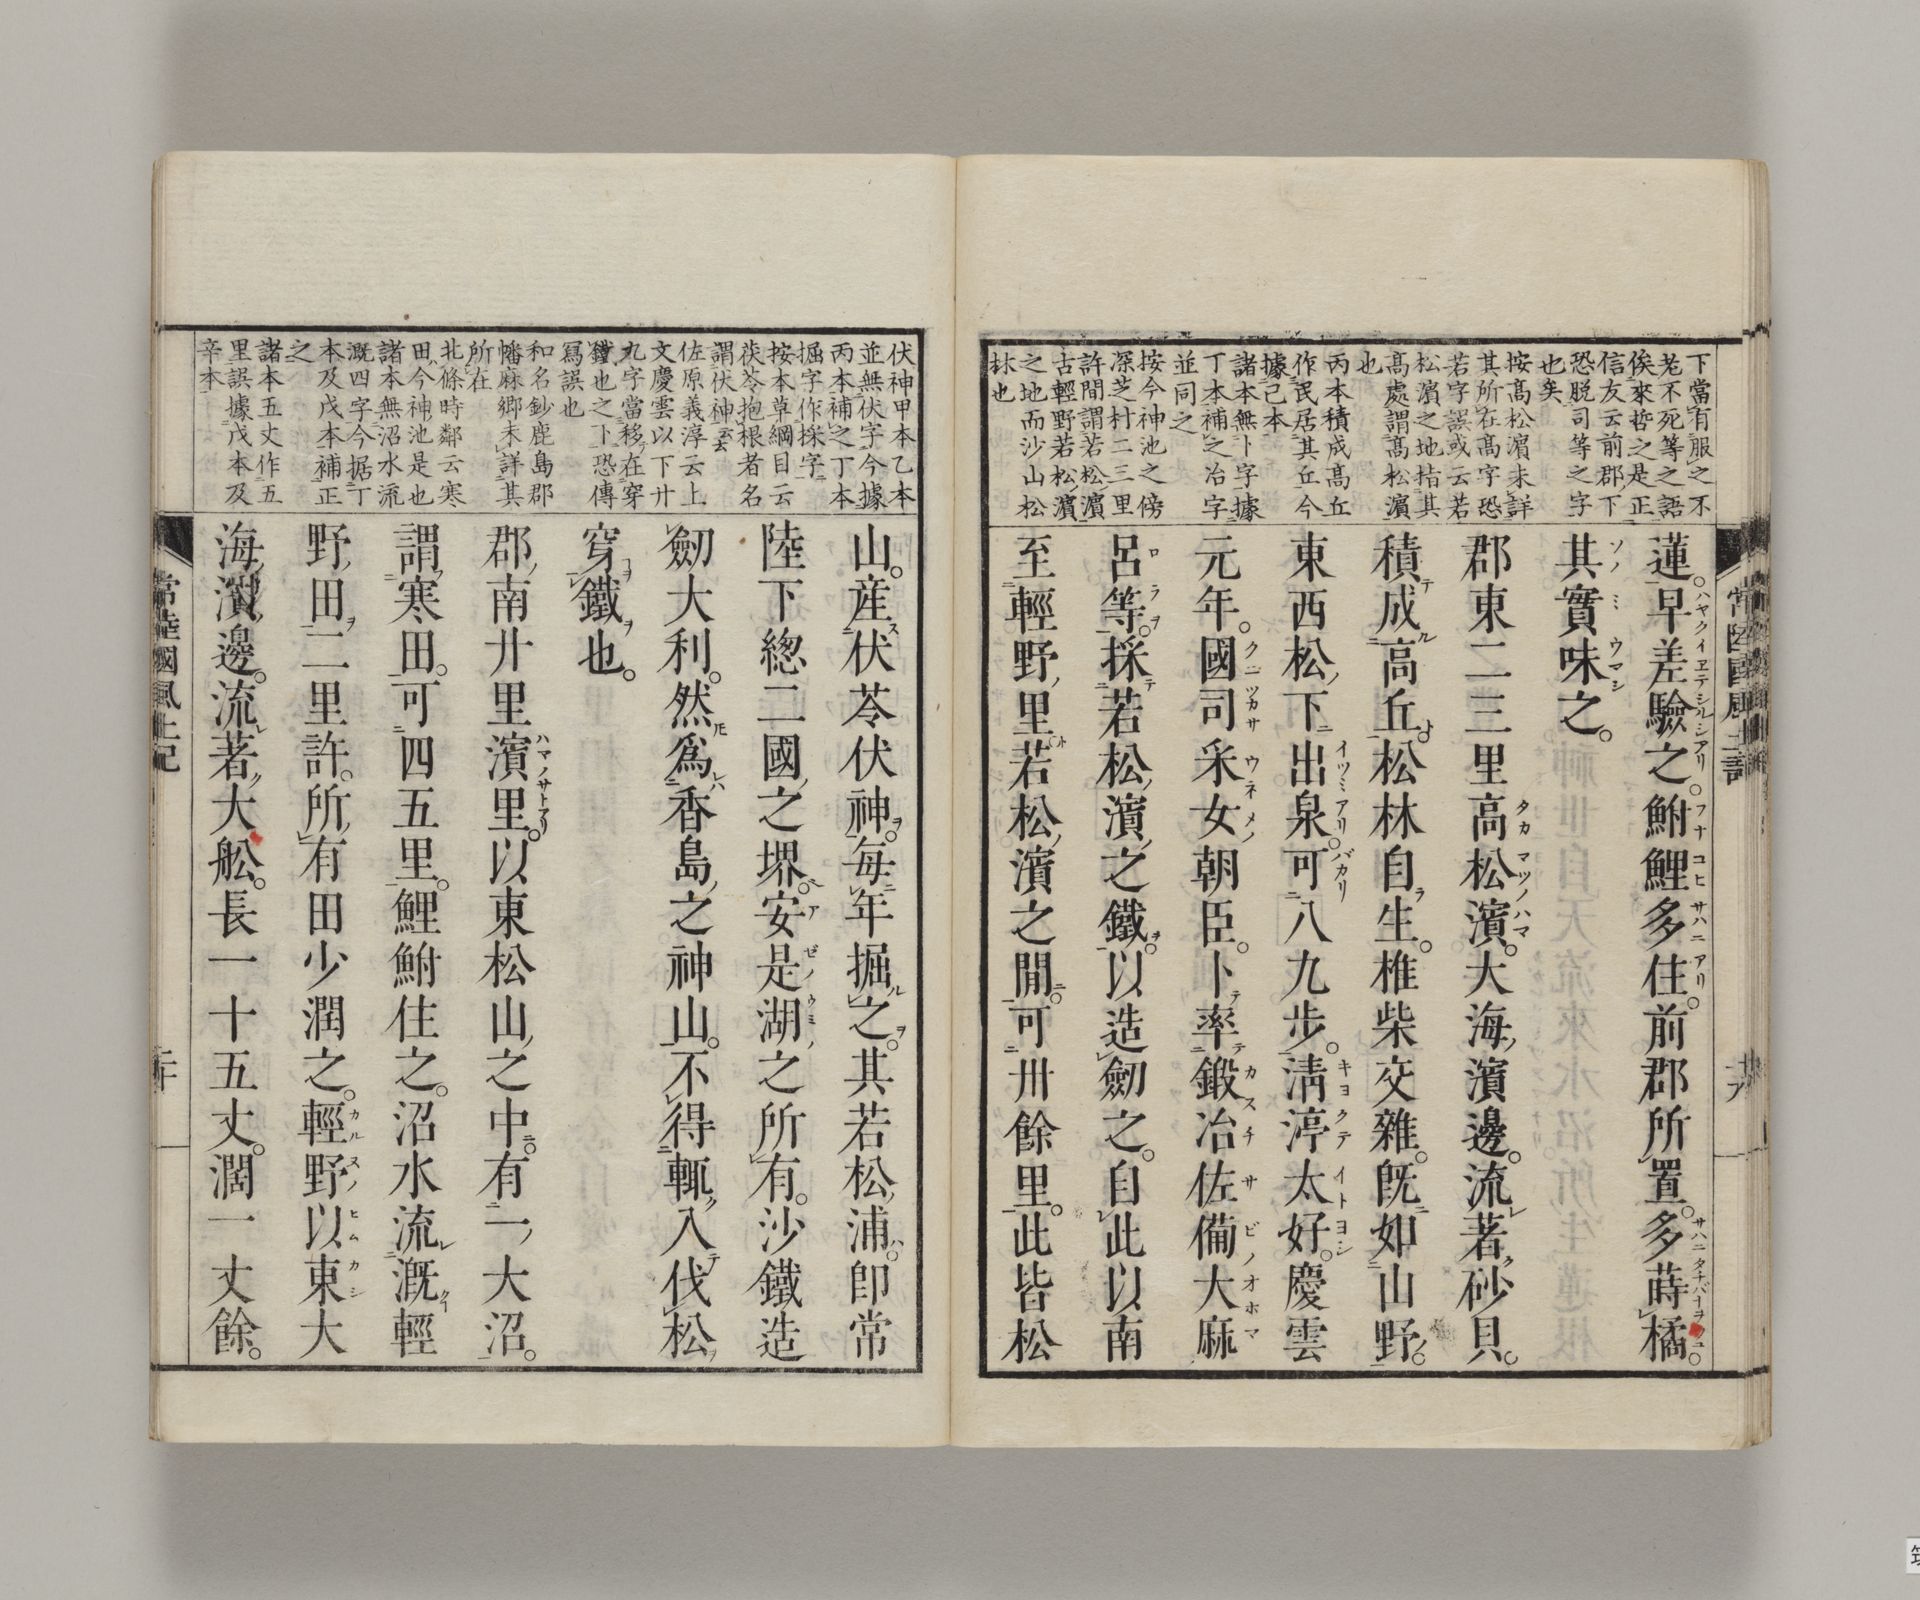 下當有服之不
老不死等之語
俟來哲之是正
信友云前郡下
恐脱司等之字
也矣
按高松濱未詳
其所在高字恐
若字誤或云若
松濱之地指其
高處謂高松濱
也
丙本積成高丘
作民居其丘今
據己本
諸本無卜字據
丁本補之冶字
並同之
按今神池之傍
深芝村二三里
許間謂若松濱
古輕野若松濱
之地而沙山松
林也
蓮。早差驗之。鮒鯉多住。前郡所置。多蒔橘。
其實味之。
郡東二三里高松濱。大海濱邊。流著砂貝。
積成高丘。松林自生。椎柴交雜。既如山野。
東西松下出泉。可八九步。淸渟太好。慶雲
元年。國司采女朝臣。卜率鍛冶佐備大麻
呂等。採若松濱之鐵。以造劒之。自此以南
至輕野里若松濱之間。可卅餘里。此皆松
常陸國風土記
十九
伏神甲本乙本
並無伏字今據
丙本補之丁本
掘字作採字
按本草綱目云
茯苓抱根者名
謂伏神云
佐原義淳云上
文慶雲以下廾
九字當移在穿
鐵也之下恐傳
寫誤也
和名鈔鹿島郡
幡麻鄉未詳其
所在
北條時鄰云寒
田今神池是也
諸本無沼水流
漑四字今据丁
本及戊本補正
之
諸本五丈作五
里誤據戊本及
辛本
山。産伏苓伏神。每年掘之。其若松浦。卽常
陸下總二國之堺。安是湖之所有。沙鐵造
劒大利。然爲香島之神山。不得輙入伐松
穿鐵也。
郡南廾里濱里。以東松山之中。有一大沼。
謂寒田。可四五里。鯉鮒住之。沼水流漑輕
野田二里許。所有田少潤之。輕野以東大
海濱邊。流著大舩。長一十五丈。濶一丈餘。
常陸國風土記
二十